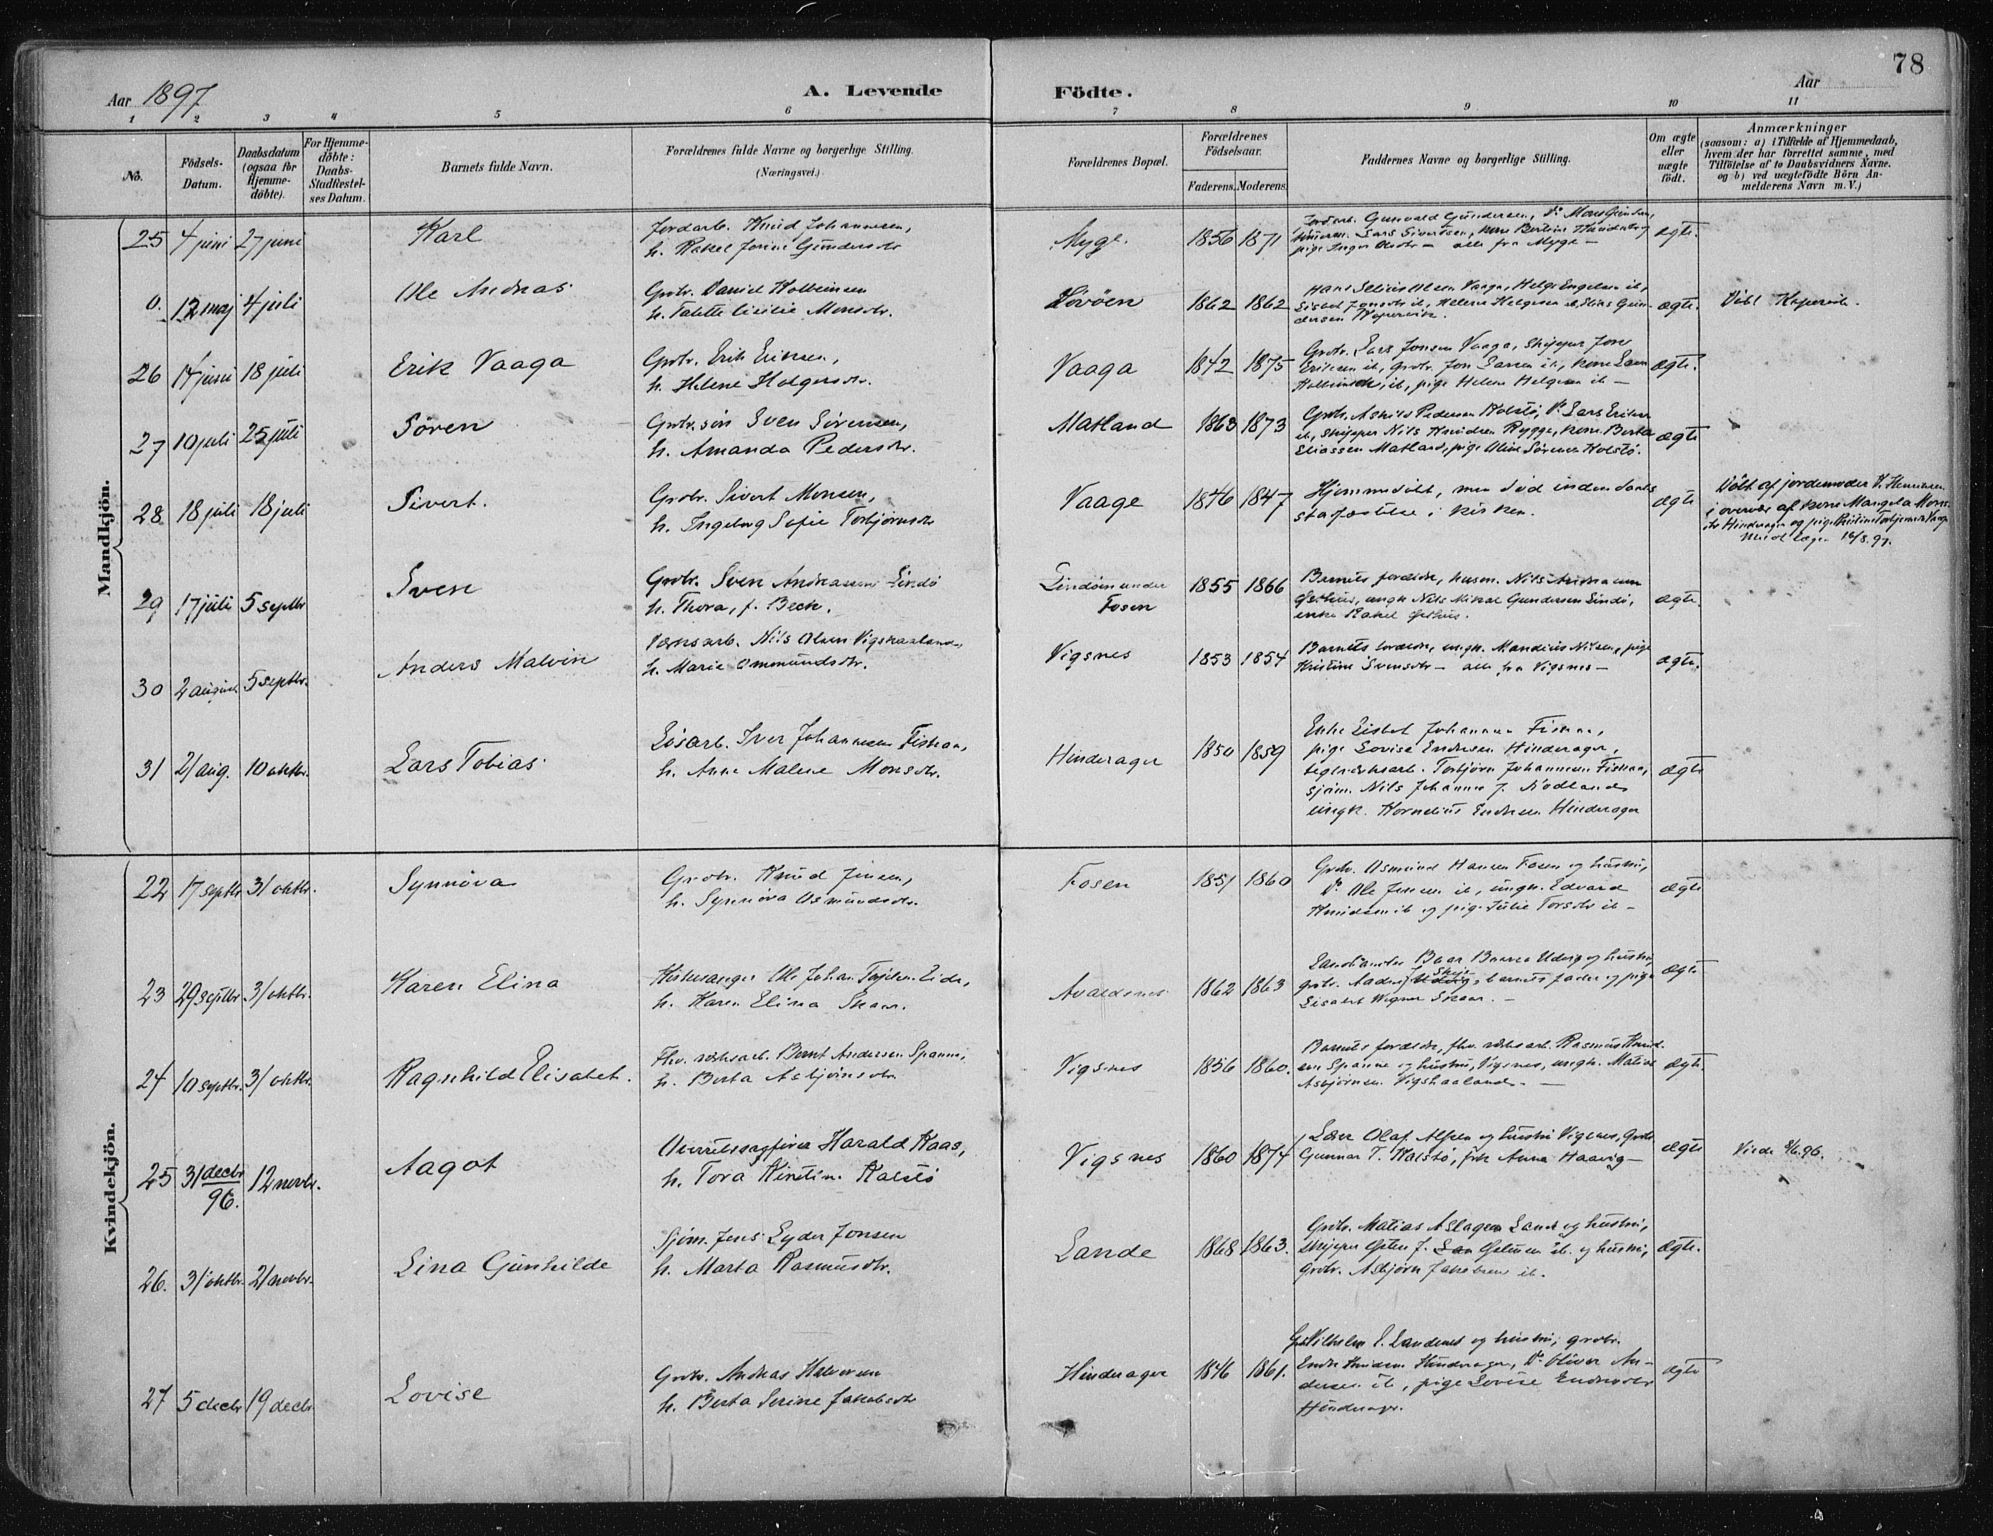 78
Aar 1897
A. Levende
Födte.
Aar
1 2 3 4 5 6 7 8 9 10 11
No.
Födsels-Datum.
Daabsdatum (ogsaa for Hjemme-döbte).
For Hjemme-döbte: Daabs-Stadfæstel-ses Datum.
Barnets fulde Navn.
Forældrenes fulde Navne og borgerlige Stilling. (Næringsvei.)
Forældrenes Bopæl.
Forældrenes Födselsaar.
Faderens. Moderens.
Faddernes Navne og borgerlige Stilling.
Om ægte eller uægte födt.
Anmærkninger
(saasom: a) i Tilfælde af Hjemmedaab, hvem der har forrettet samme, med Tilföielse af to Daabsvidners Navne. og b) ved uægtefödte Börn An-melderens Navn m. V.)
Mandkjön.
25 4 juni 27 juni Karl
Jordarb. Knud Johannesen,
h. Rakel Jorine Gundersdtr
Myge. 1856 1871
Jordarb. Gunvald Gundersen, Do Mons
Lars Sivertsen, kone
pige Inger alle fra Myge –
ægte.
0. 12 maj 4 juli Ole Andreas
Grbr. Daniel Kolbeinsen
h. Talette Cicilie Monsdtr.
1862 1862
Hans Selius Olsen Vaaga, Helge Engelsen ib,
ægte. Döbt Kopervik.
26 14 juni 18 juli Erik Vaaga
Grbr. Erik Eriksen,
h. Helene Helgesdtr.
Vaaga 1842 1875
Grbr. Lars Jonsen Vaaga, skipper Jon
Eriksen ib, grbr. Jon Larsen ib, kone
ib, pige Helene Helgesen ib –
ægte.
27 10 juli 25 juli Sören
Grbr. sön Sven Sörensen,
h. Amanda Pedersdtr.
Matland 1863 1873
Grbr. Pedersen Kolstö, Do Lars Eriksen
ib, skipper Nils Knudsen Rygge, kone Berta
Eliassen Matland, pige Oline Sörensen Kolstö.
ægte
28 18 juli 18 juli Sivert.
Grbr. Sivert Monsen,
h. Ingeborg Sofie Torbjörnsdtr
Vaage 1846 1847
Hjemmedöbt, men död inden daabs
stadfæstelse i kirken.
ægte
Döbt af jordemoder
i overvær af kone Mangela Mons-
dtr Hinderager og pige
29 17 juli 5 septbr Sven
Grbr. Sven Andreassen Lindö
h. Thora, f. Beck.
Lindöen under
Fosen
1855 1866
Barnets forældre, husm. Nils Andreassen
ungk. Nils Mikal Gundersen Lindö,
enke Rakel
ægte.
30 2 august 5 septbr. Anders Malvin
Værksarb. Nils Olsen Vigshaaland,
h. Marie Ommundsdtr.
Vigsnes 1853 1854
Barnets forældre, ungk. Mandius Nilsen, pige
Kristine Svensdtr – alle fra Vigsnes –
ægte.
31 21 aug. 10 oktbr. Lars Tobias
Lösarb. Iver Johannessen Fiskaa,
h. Anne Malene Monsdtr.
Hinderager 1850 1859
Enke Lisbet Johannesen
pige Lovise Endresen Hinderager,
Torbjörn Johannesen Fiskaa,
sjöm. Nils Johannes J. Nödland
ungk. Kornelius Endresen Hinderager
ægte
Kvindekjön.
22 17 septbr. 31 oktbr. Synnöva
Grbr. Knud Jensen,
h. Synnöva Osmundsdtr.
Fosen 1851 1860
Grbr. Osmund Hansen Fosen og hustru,
Do Ole Jensen ib, ungk. Edvard
Knudsen ib og pige Julie Torsdtr ib –
ægte
23 29 septbr 31 oktbr. Karen Elina
Kirkesanger Ole Johan Eide,
h. Karen Elina Skaar.
Avaldsnes 1862 1863
Landhandler og hustru
grbr. barnets fader og pige
Lisabet Skaar. –
ægte
24 10 septbr. 31 oktbr. Ragnhild Elisabet.
Fhv. værksarb. Bernt Andersen Spanne,
h. Berta Asbjörnsdtr
Vigsnes 1856 1860.
Barnets forældre, fhv. værksarb. Rasmus Knud-
sen Spanne og hustru, Vigsnes, ungk.
Asbjörnsen Vigshaaland. –
ægte.
25 31 decbr 96. 12 novbr. Aagot
Overretssagförer Harald Kaas,
h. Tora Kirstine Kalstö
Vigsnes 1860 1874
Olaf Alsen og hustru Vigsnes, Grbr
Gunnar T. Kalstö, frk Anna Haavig –
ægte Viede 9/6.96.
26. 31 oktbr. 21 novbr. Lina Gunhilde
Sjöm. Jens Eyder Jonsen
h. Marta Rasmusdtr.
Lande 1868 1863.
Grbr. Matias Aslagsen Lande og hustru,
skipper ib. og hustru,
Grbr. Asbjörn Jakobsen ib.
ægte.
27 5 decbr 19 decbr. Lovise
Grbr. Andreas Halvorsen
h. Berta Serine Jakobsdtr
Hinderager 1846 1861.
Vilhelm og hustru, grbr.
Endre Knudsen Hinderager, Do Oliver An-
dersen ib, pige Lovise Endresdtr
Hinderager.
ægte